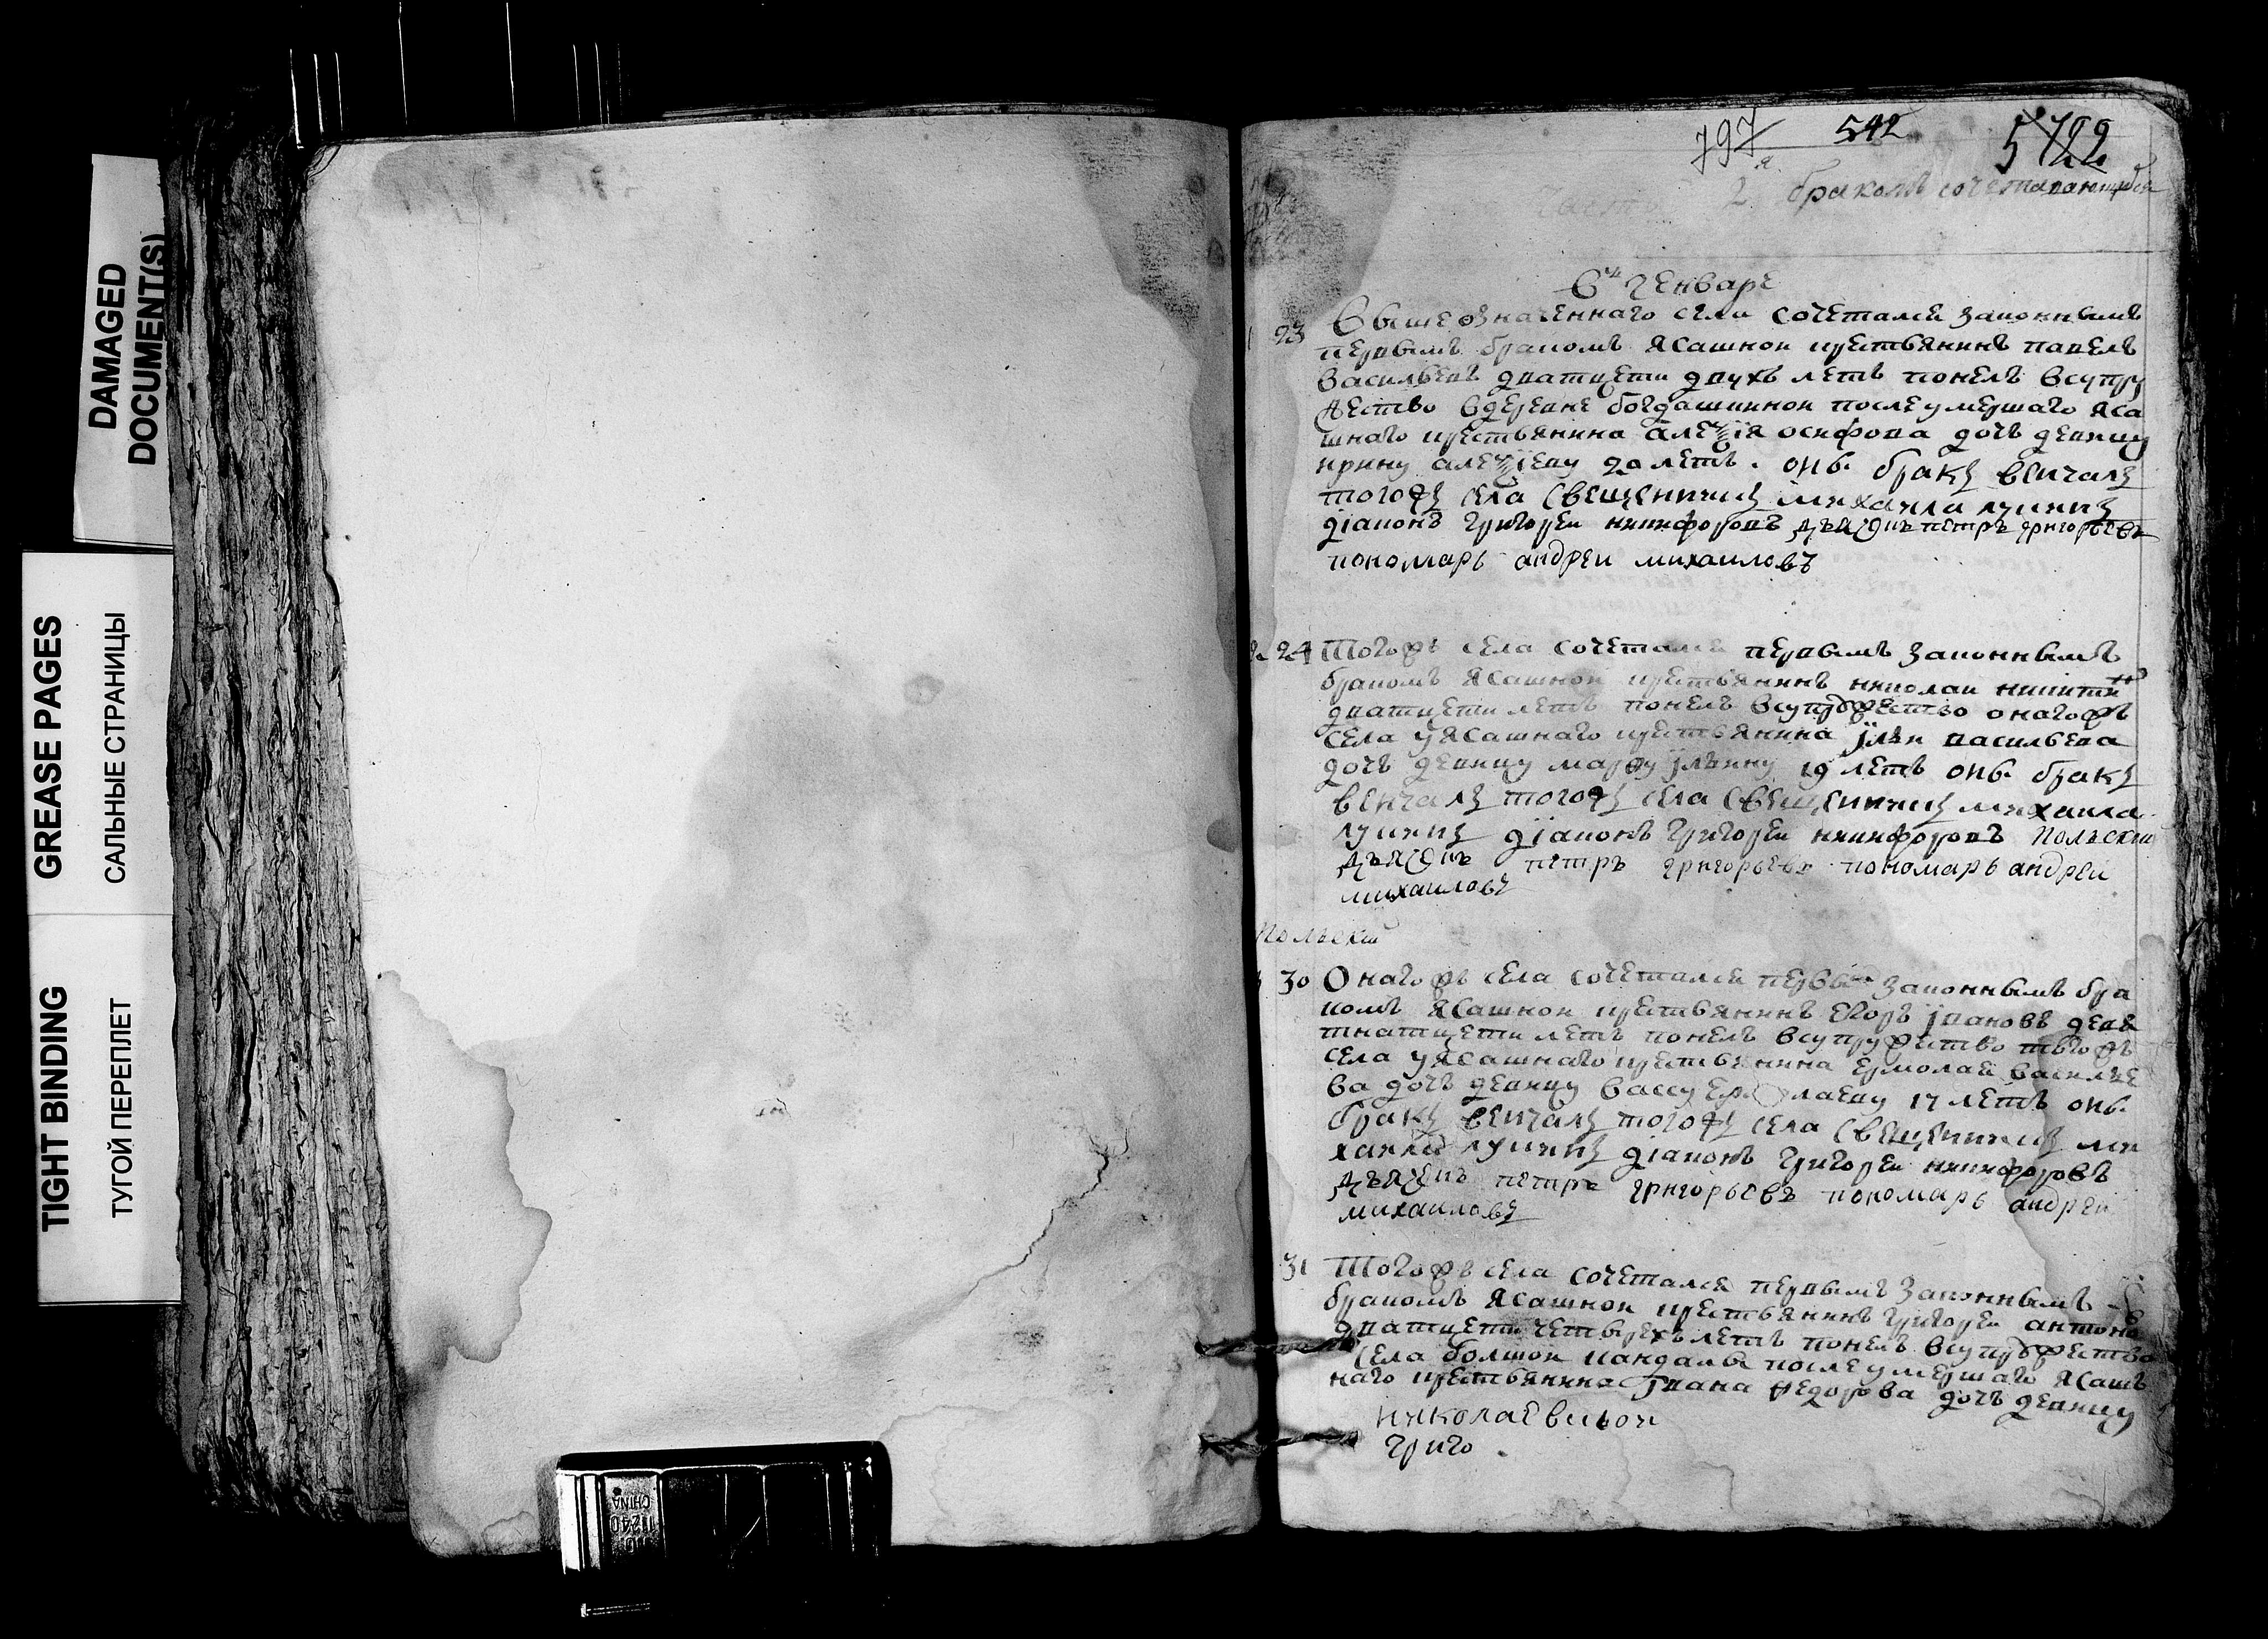 DAMAGED
DOCUMENT(S)
GREASE PAGES
САЛЬНЫЕ СТРАНИЦЫ
TIGHT BINDING
ТУГОЙ ПЕРЕПЛЕТ
797 542 5722
Часть 2я бракомъ сочетавающихся
Въ генваре
1 23 Выше означеннаго села сочетался законнымъ
первымъ бракомъ ясашнои крестьянинъ павелъ
васильевъ дватцети двухъ летъ понелъ всупру
жество вдеревне богдашкинои после умершаго яса
шнаго крестьянина алеѯѣя осифова дочь девицу
ирину алеѯѣеву 20 летъ. онъ. бракъ венчалъ
тогожъ села священникъ михаила лукинъ
діаконъ григореи никифоровъ дьячекъ петръ григорьевъ
пономарь андреи михаиловъ
2. 24 Тогожъ села сочетался первымъ законнымъ
бракомъ ясашнои крестьянинъ николаи никитинъ
дватцети летъ понелъ всупружество онагожъ
села уясашнаго крестьянина їльи васильева
дочь девицу марѳу їльину 19 летъ онъ. бракъ
венчалъ тогожъ села священникъ михаила
лукинъ діаконъ григореи никифоровъ Польскии
дьячекъ петръ григорьевъ пономарь андреи
михаиловъ
Польскии
30 Онагожъ села сочетался первымъ законнымъ бра
комъ ясашнои крестьянинъ егоръ ївановъ девя
тнатцети летъ понелъ всупружество тогожъ
села уясашнаго крестьянина ермолая василье
ва дочь девицу вассу ермолаеву 17 летъ онъ.
бракъ венчалъ тогожъ села священникъ ми
хаила лукинъ діаконъ григореи никифоровъ
дьячекъ петръ григорьевъ пономарь андреи
михаиловъ
31 Тогожъ села сочетался первымъ законнымъ
бракомъ ясашнои крестьянинъ григореи антоно
дватцети четырехъ летъ понелъ всупружество
села болшои кандалы после умершаго ясаш
наго крестьянина їванa ѳедорова дочь девицу
николаевичи
григо
CHINA